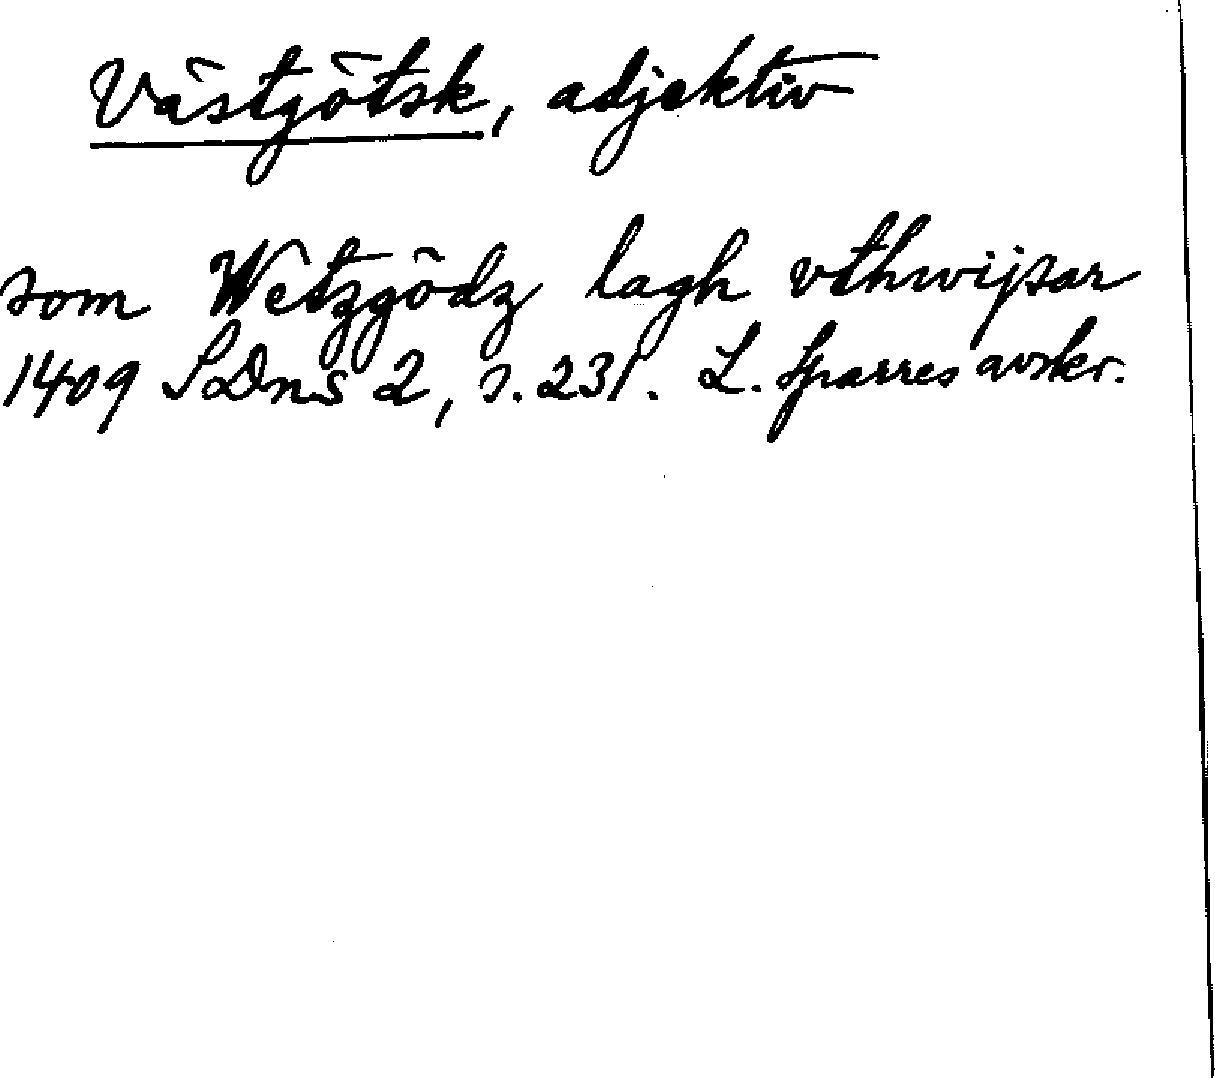 Västgötsk, adjektiv
som Wetzgödz lagh vthwijsar
1409 SDns 2, s. 231. L. Sparres avskr.